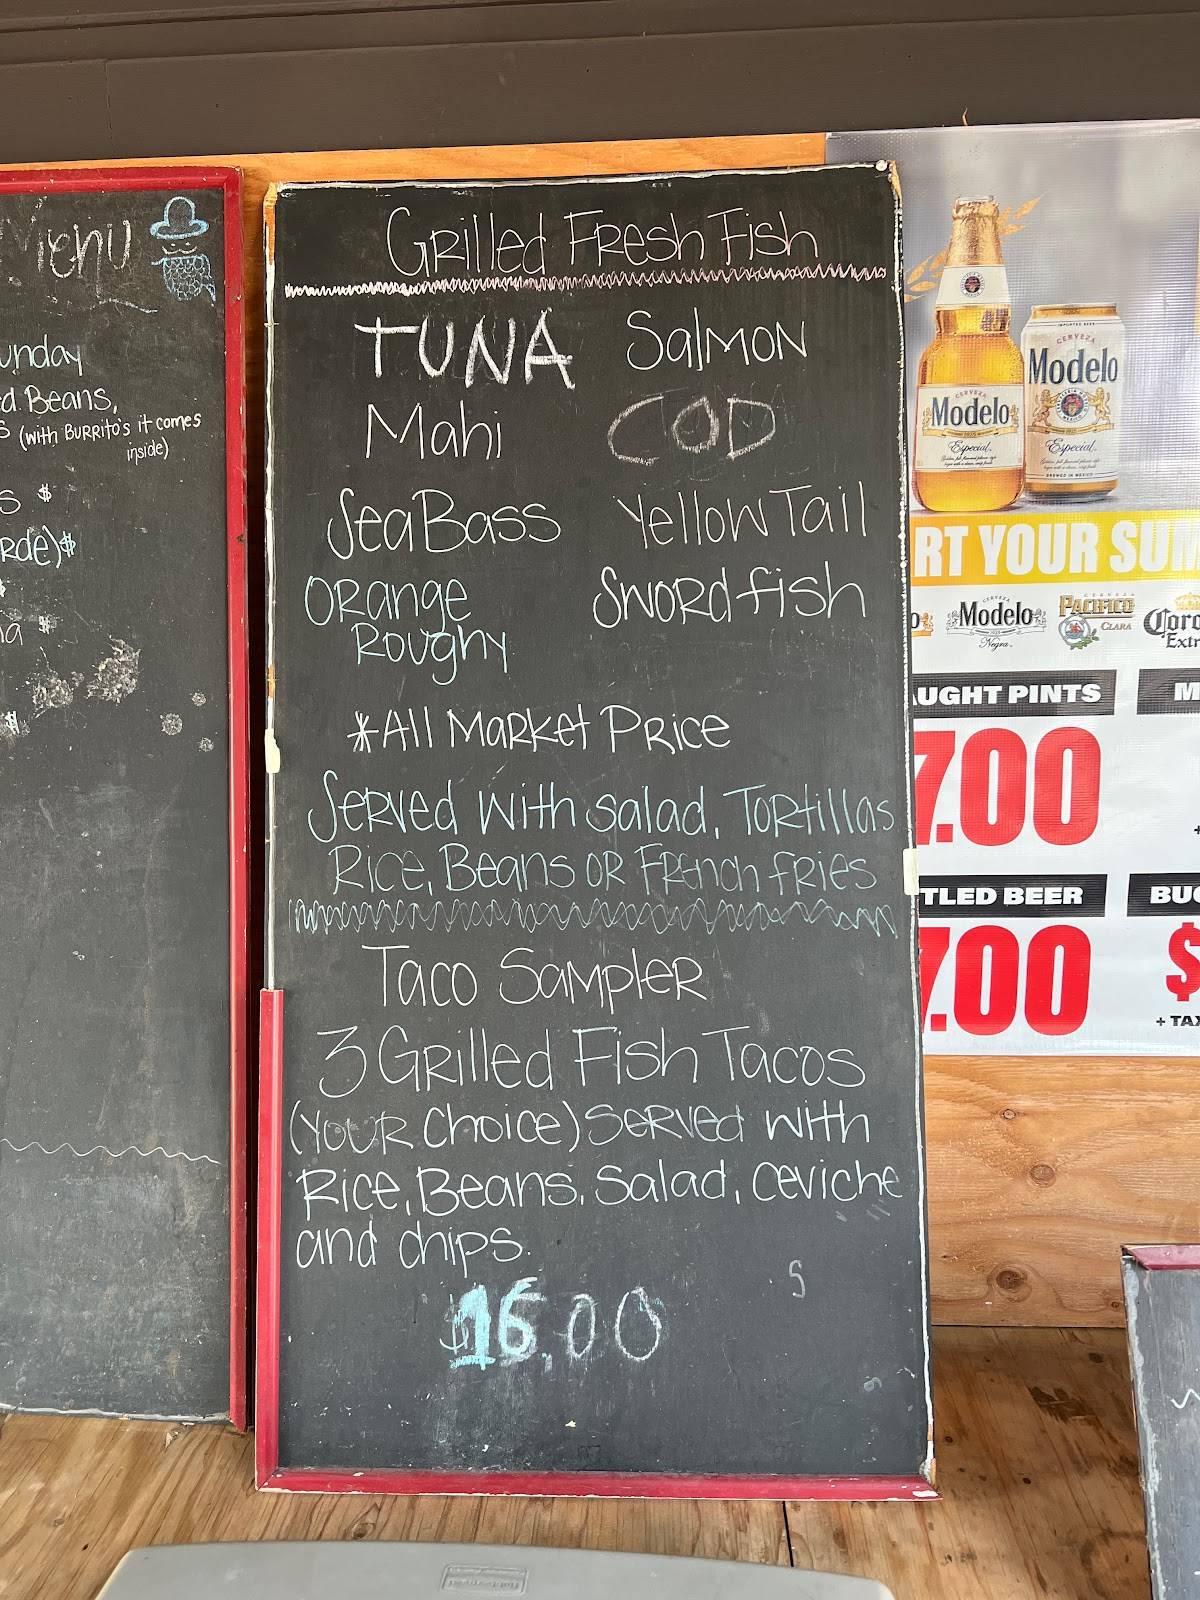 Menu
unday
d Beans,
S (with BURRito's it comes
inside)
S $
Rde)$
a $
$
GRilled FResh Fish
TUNA SalMON
Mahi COD
SeaBass YellowTail
ORange SwoRdfish
Roughy
*All MaRket PRice
SeRved with salad, ToRtillas
Rice, Beans OR FRench fRies
Taco SaMpleR
3 GRilled Fish Tacos
(YOUR Choice) SeRved with
Rice, Beans, Salad, ceviche
and chips.
$16.00
S
CERVEZA
Modelo
Especial
IMPORTED BEER
CERVEZA
Modelo
Especial
BREWED IN MEXICO
RT YOUR SUM
CERVEZA
Modelo
Negra
CERVEZA
PACIFICO
CLARA
Coro
Extr
AUGHT PINTS M
7.00
TLED BEER BUC
7.00 $
+ TAX